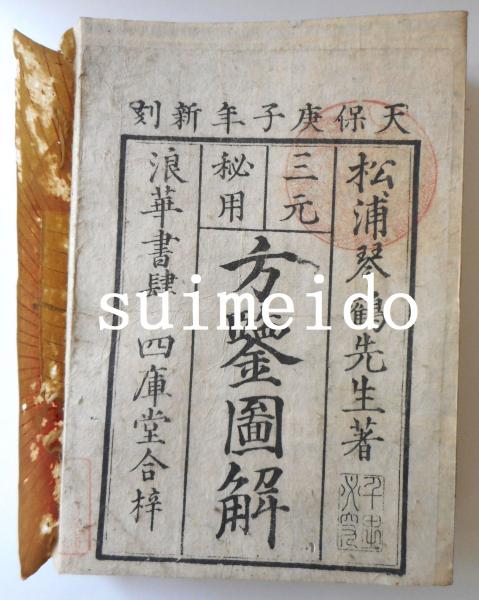 天保庚子年新刻
松浦琴鶴先生著
三元
秘用
方鑒圖解
浪華書肆 四庫堂合梓
suimeido